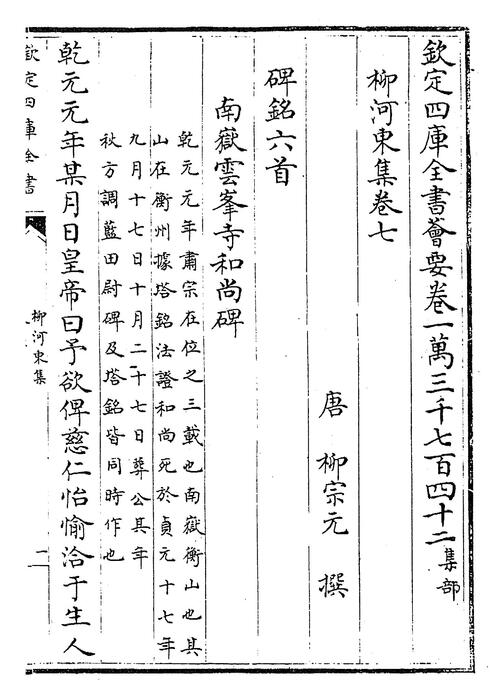 欽定四庫全書薈要卷一萬三千七百四十二集部
柳河東集卷七
唐 柳宗元 撰
碑銘六首
南嶽雲峯寺和尚碑
乾元元年肅宗在位之三載也南嶽衡山也其
山在衡州據塔銘法證和尚死於貞元十七年
九月十七日十月二十七日葬公其年
秋方調藍田尉碑及塔銘皆同時作也
乾元元年某月日皇帝曰予欲俾慈仁怡愉洽于生人
欽定四庫全書
柳河東集
一